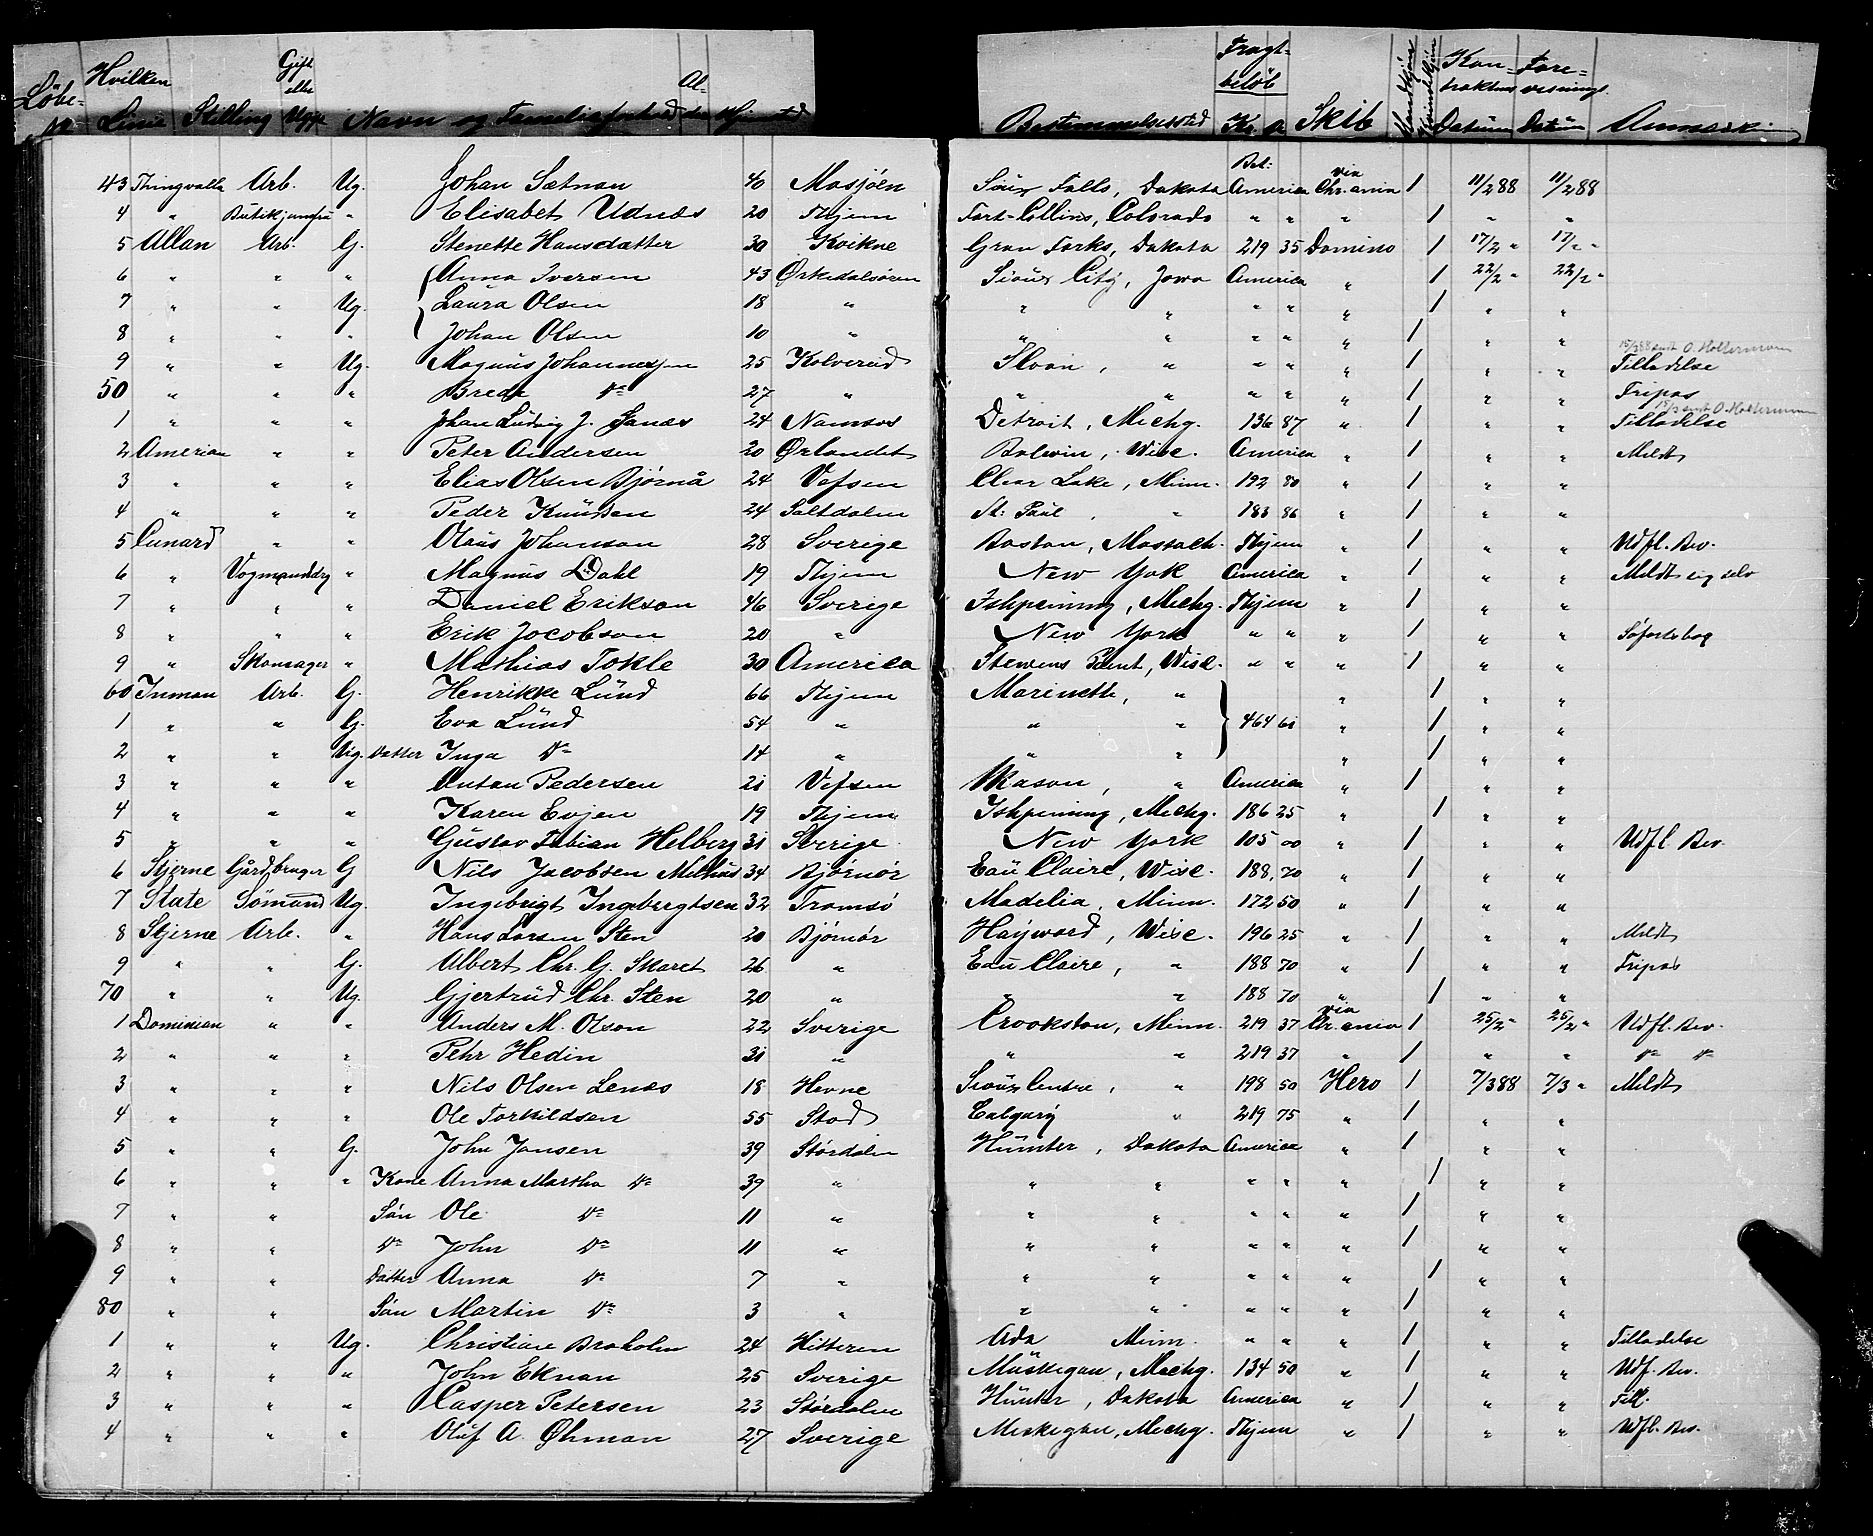 Løbe- № Hvilken Linie Stilling Gift eller Ugift Navn og Familieforhold Al- der Hjemsted Bestemmelsessted Fragt- beløb Kr. Ø Skib Mandkjøn Kvindekjøn Kon- traktens Datum Fore- visnings Datum Anmærk
43 Thingvalla Arb. Ug. Johan Sætnan 40 Mosjøen Sioux Falls, Dakota Bet: America via Chr.ania 1 11/2 88 11/2 88
4 " Butikjomfru " Elisabet Udnæs 20 Thjem Fort-Collins, Colorado " " " 1 " "
5 Allan Arb. G. Stenette Hansdatter 30 Kvikne Gran Forks, Dakota 219 35 Domino 1 17/2 " 17/2 "
6 " " " Anna Iversen 43 Ørkedalsøren Sioux City, Jowa America " 1 22/2 " 22/2 "
7 " " Ug. Laura Olsen 18 " " " " " " 1 " "
8 " " " Johan Olsen 10 " " " " " " 1 " "
9 " " Ug. Magnus Johannessen 25 Kolvereid Sloan, " " " " 1 " " Tilladelse
50 " " " Breda Do 27 " " " " " " 1 " " Fripas
1 " " " Johan Ludvig J. Sanæs 24 Namsos Detroit, Michg. 136 87 " 1 " " Tilladelse
2 Amerian " " Peter Andersen 20 Ørlandet Balwin, Wisc. America " 1 " " Mildt
3 " " " Elias Olsen Bjørnå 24 Vefsen Clear Lake, Minn. 192 80 " 1 " "
4 " " " Peder Knudsen 24 Saltdalen St: Paul, " 183 86 " 1 " "
5 Cunard " " Olaus Johanson 28 Sverige Boston, Massach. Thjem " 1 " " Udfl. Bev.
6 " Vognmandsdrg " Magnus Dahl 19 Thjem New York America " 1 " " Mildt sig selv
7 " " " Daniel Erikson 46 Sverige Ishpeming, Michg. Thjem " 1 " "
8 " " " Erik Jacobson 20 " New York " " " 1 " " Søfartsbog
9 " Skomager " Mathias Tokle 30 America Stevens Point, Wisc. " " " 1 " "
60 Inman Arb. G. Henrikke Lund 66 Thjem Marinette, " " 1 " "
1 " " G. Eva Lund 54 " " " 464 61 " 1 " "
2 " " Ug. Datter Inga Do 14 " " " " 1 " "
3 " " " Anton Pedersen 21 Vefsen Mason, " America " 1 " "
4 " " " Karen Evjen 19 Thjem Ishpeming, Michg. 186 25 " 1 " "
5 " " " Gustav Fabian Helberg 31 Sverige New York 105 00 " 1 " " Udfl Bev.
6 Stjerne Gårdbruger G Nils Jacobsen Melhus 34 Bjørnør Eau Claire, Wisc. 188 70 " 1 " "
7 State Sømand Ug. Ingebrigt Ingebrigtsen 32 Tromsø Madelia, Minn. 172 50 " 1 " "
8 Stjerne Arb. " Hans Larsen Sten 20 Bjørnør Hayward, Wisc. 196 25 " 1 " " Mildt
9 " " G. Albert Chr. G. Skaret 26 " Eau Claire, " 188 70 " 1 " " Fripas
70 " " Ug. Gjertrud Chr. Sten 20 " " " 188 70 " 1 " "
1 Dominian " " Anders M. Olson 22 Sverige Crookston, Minn. 219 37 via Chr.ania 1 25/2 " 25/2 " Udfl. Bev.
2 " " " Pehr Hedin 31 " " " 219 37 " 1 " " Do Do
3 " " " Nils Olsen Lenæs 18 Hevne Sioux Centre, " 198 50 Hero 1 7/3 88 7/3 " Mildt
4 " " " Ole Torkildsen 55 Stod Calgary " 219 75 " 1 " "
5 " " G. John Jansen 39 Størdalen Hunter, Dakota America " 1 " "
6 " " " Kone Anna Martha Do 39 " " " " " " 1 " "
7 " " Søn Ole Do 11 " " " " " " 1 " "
8 " " Do John Do 11 " " " " " " 1 " "
9 " " Datter Anna Do 7 " " " " " " 1 " "
80 " " Søn Martin Do 3 " " " " " " 1 " "
1 " " Ug. Christian Braholm 24 Hitteren Ada Minn. " " " 1 " " Tilladelse
2 " " " John Eknan 25 Sverige Muskegan, Michg. 134 50 " 1 " " Udf. Bev.
3 " " " Casper Petersen 23 Størdalen Hunter, Dakota America " 1 " " Till.
4 " " " Oluf A. Øhman 27 Sverige Muskegan, Michg. Thjem " 1 " " Udfl. Bev.